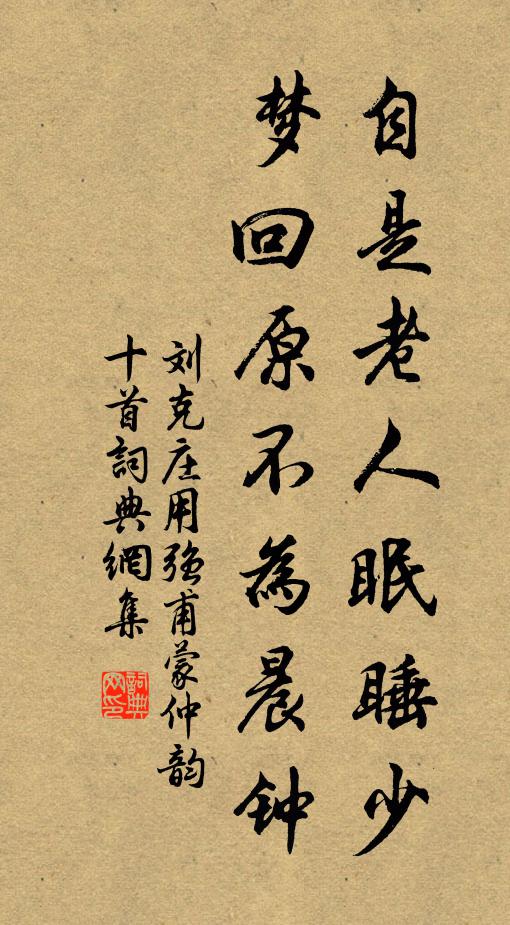 自是老人眠睡少
梦回原不為晨钟
刘克庄用强甫蒙仲韵
十首詞典網集
詞典
网印